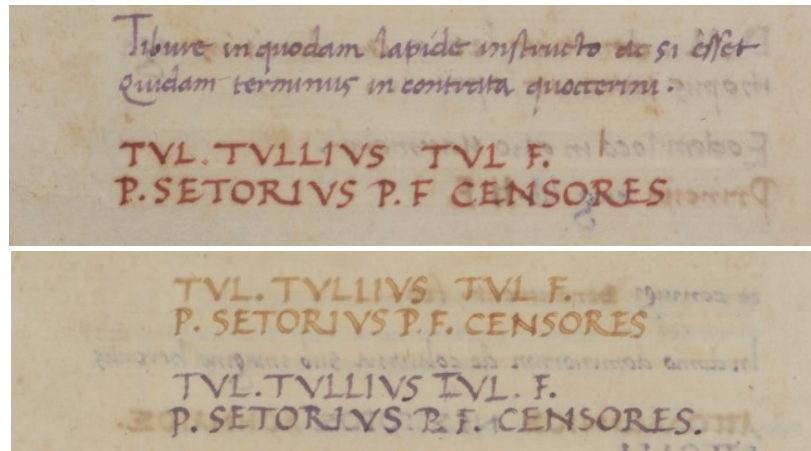 Tibure in quodam lapide instructo ac si esset
Quidam terminus in contrata quocterini.
TVL. TVLLIVS TVL F.
P. SETORIVS P. F CENSORES
TVL. TVLLIVS TVL F.
P. SETORIVS P. F. CENSORES
TVL. TVLLIVS TVL. F.
P. SETORIVS P. F. CENSORES.